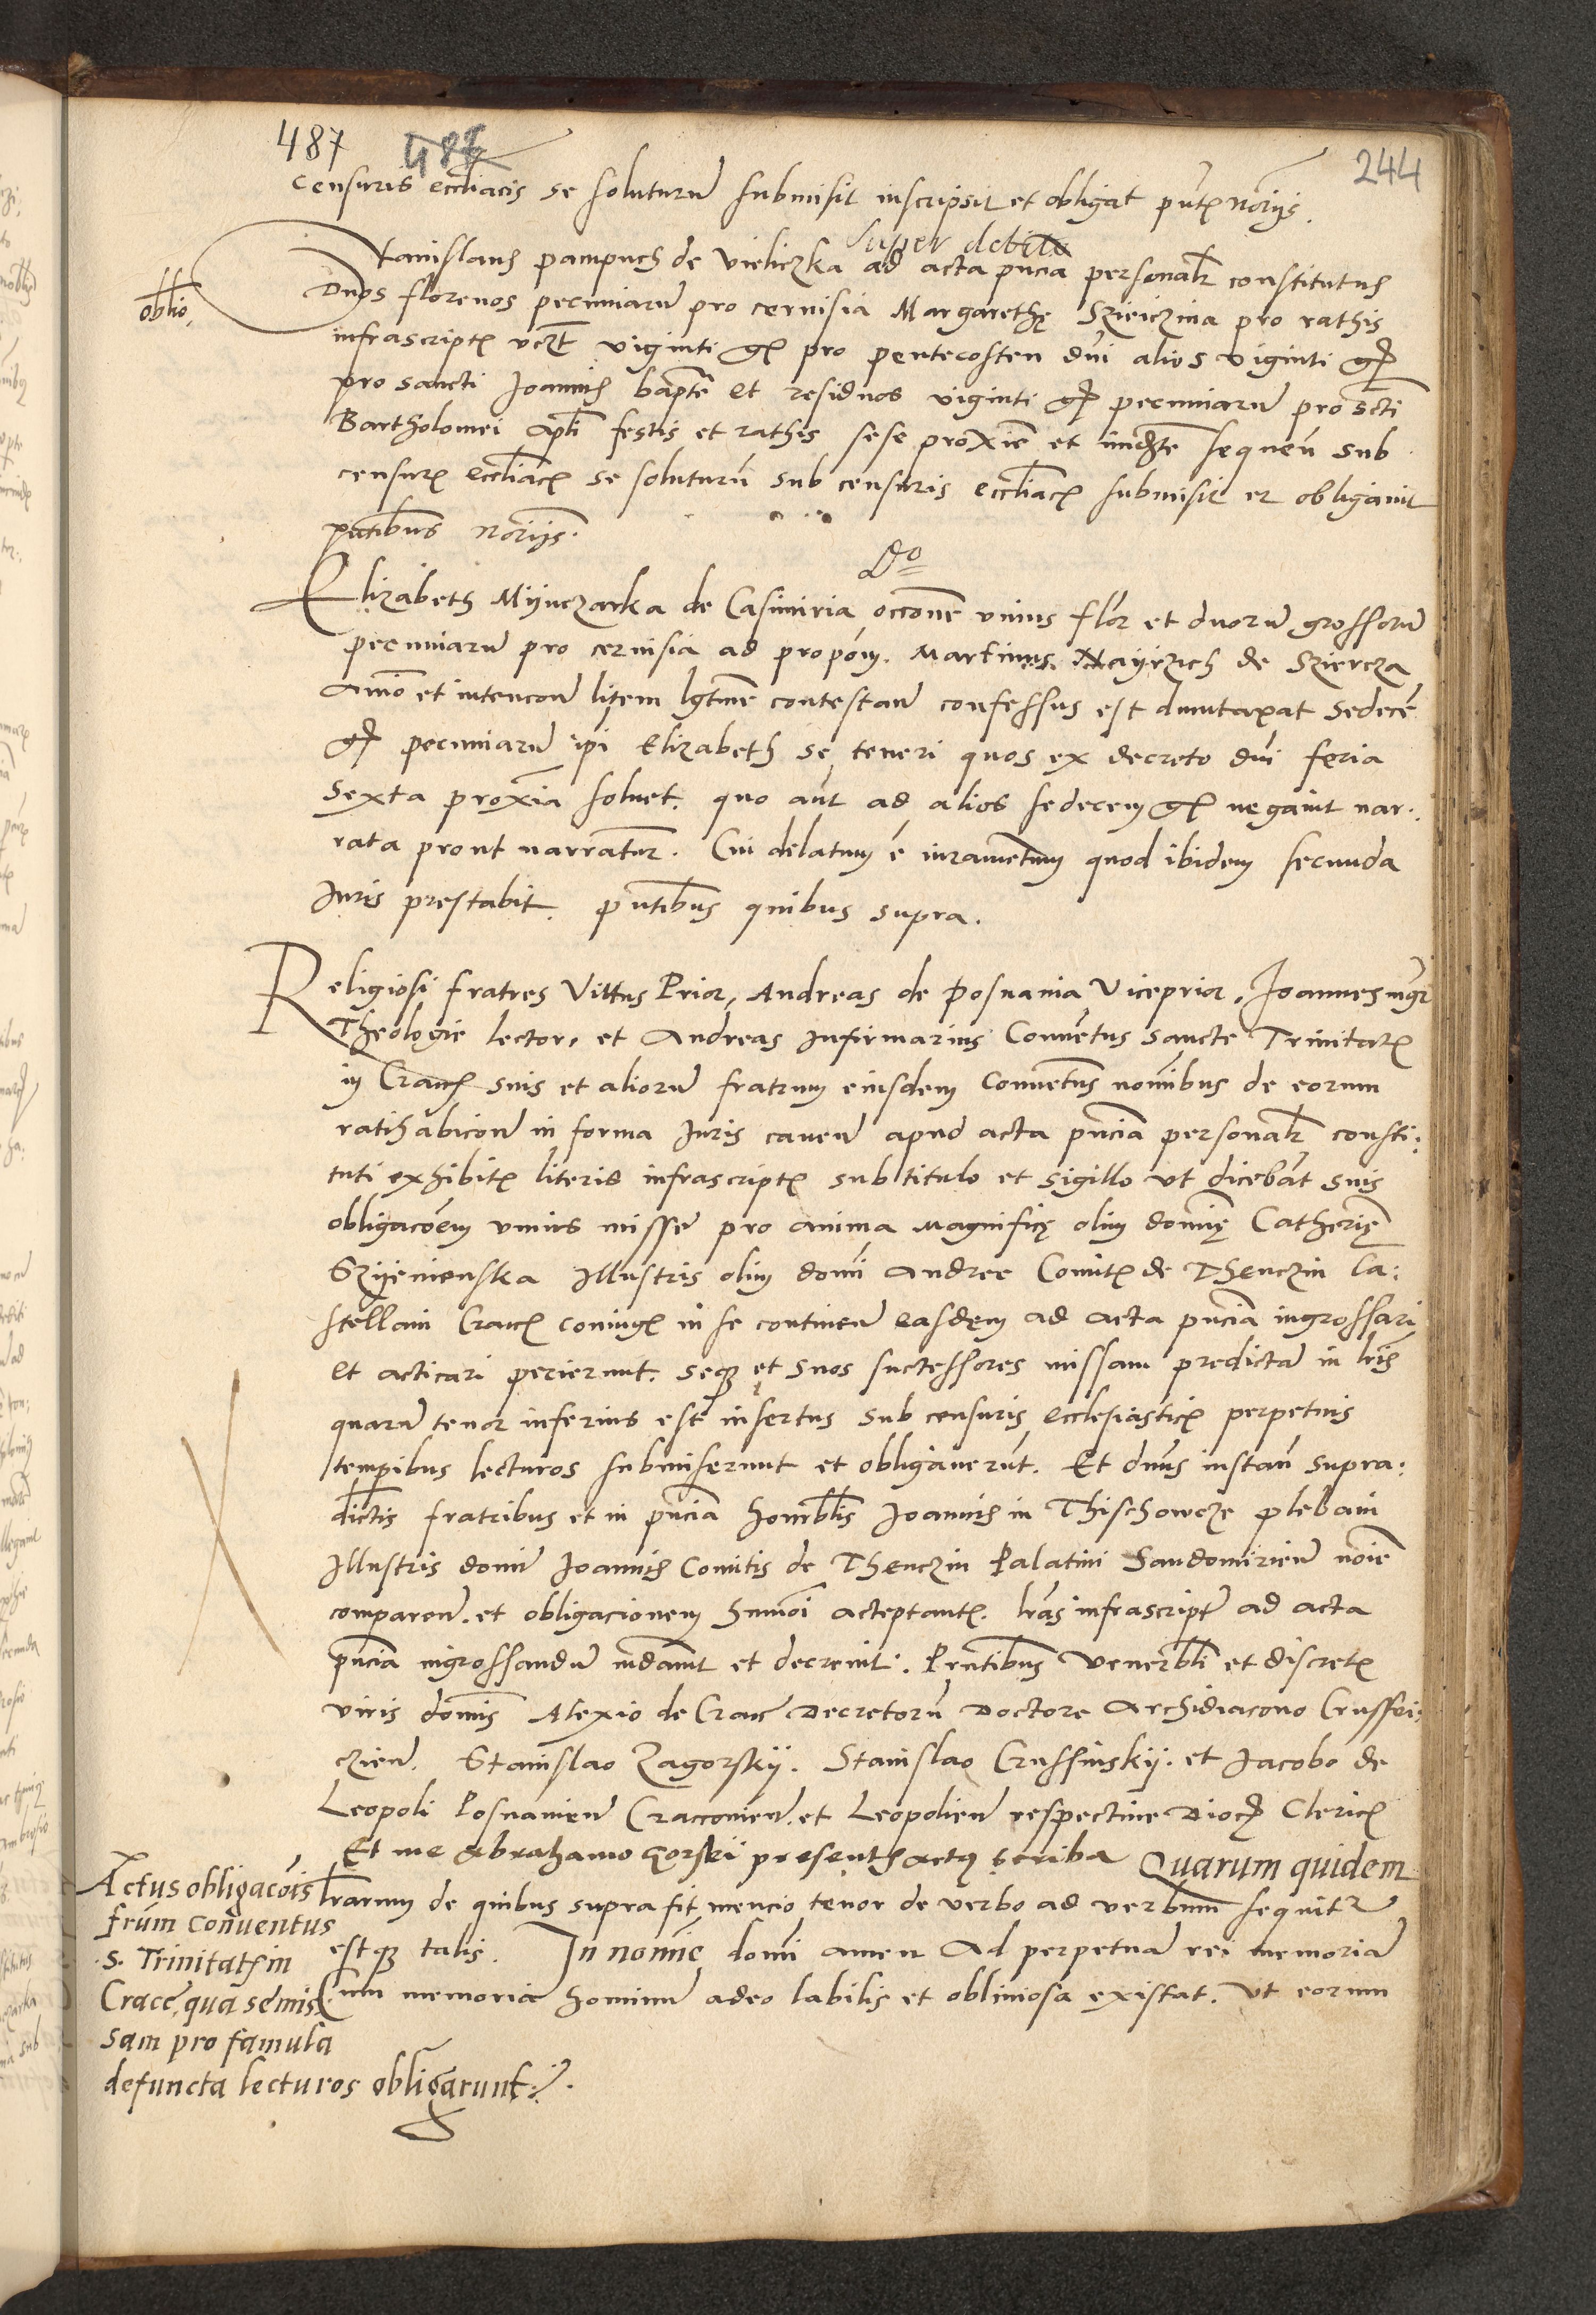 487 487 244
censuris eccliacis se soluturu submisit inscripsit et obligat pntz noriis.
Super debito
Stanislaus pampuch de vieliczka ad acta pncia personalr constitutus
oblio.
Duos florenos pecuniaru pro cervisia Margarethę Szieiczina pro rathis
infrascriptz vczt viginti gr pro pentecosten dni alios viginti gr
pro sancti Joannis bapte et residuos viginti gr pecuniaru pro scti
Bartholomei apli festis et rathis sese proxie et imdte sequen sub
censurz eccliacz se soluturu sub censuris eccliacz submisit et obligauit
pntibus noriis.
Do
Elizabeth Mijnczarka de Casimiria occone unius flor et duorum grossoru
pecuniaru pro cervisia ad propom. Martinus Nayrzich de Sziercza
animo et intencon litem lgtme contestan confessus est dumtaxat sedece
gr pecuniaru ipi Elizabeth se teneri quos ex decreto dni feria
sexta proxia soluet. quo aut ad alios sedecem gr negauit nar:
rata prout narratur. Cui delatum e iuramentum quod ibidem secunda
Juris prestabit. pntibus quibus supra.
Religiosi fratres Vittus Prior, Andreas de Posnania Viceprior, Joannes mgr
Theologie lector, et Andreas Infirmarius Conuentus sancte Trinitatz
in Cracz suis et aliorum fratrum eiusdem Conuentus nomibus de eorum
ratihabicion in forma Juris cauen apud acta pncia personalr consti:
tuti exhibitz literis infrascriptz sub titulo et sigillo ut dicebat suis
obligacoem unius misse pro anima Magnificę olim domię Catherię
Szijenienska Illustris olim domi Andree Comitz de Thenczin Ca:
stellani Cracz coniugz in se continen easdem ad acta pncia ingrossari
et acticari pecierunt. seqz et suos successores missam predicta in lris
quaru tenor inferius est insertus sub censuris ecclesiasticz perpetuis
temporibus lecturos submiserunt et obligauerut. Et dnus instan supra:
dictis fratribus et in pncia honorblis Joannis in Thischowcze plebani
Illustris domi Joannis Comitis de Thenczin Palatini Sandomirien noie
comparen. et obligacionem humoi acceptantz. lras infrascriptz ad acta
pncia ingrossandu mdauit et decreuit. Pntibus Venerbli et discretz
viris domis Alexio de Crac Decretoru Doctore Archidiacono Crussvi:
czien. Stanislao Zagorskij. Stanislao Crussinskij. et Jacobo de
Leopoli Posnanien Cracouien. et Leopolien respectiue Dioc Clericz
Et me Abrahamo Gorski presentis actus scriba Quarum quidem
lrarum de quibus supra fit mencio tenor de verbo ad verbum sequitur
estqz talis. In nomie domi amen Ad perpetua rei memoria
Cum memoria hominu adeo labilis et obliuiosa existat. Ut eorum
Actus obligacois
frum Conuentus
S. Trinitatis in
Cracc, qua se mis
sam pro famula
defuncta lecturos obligarunt.